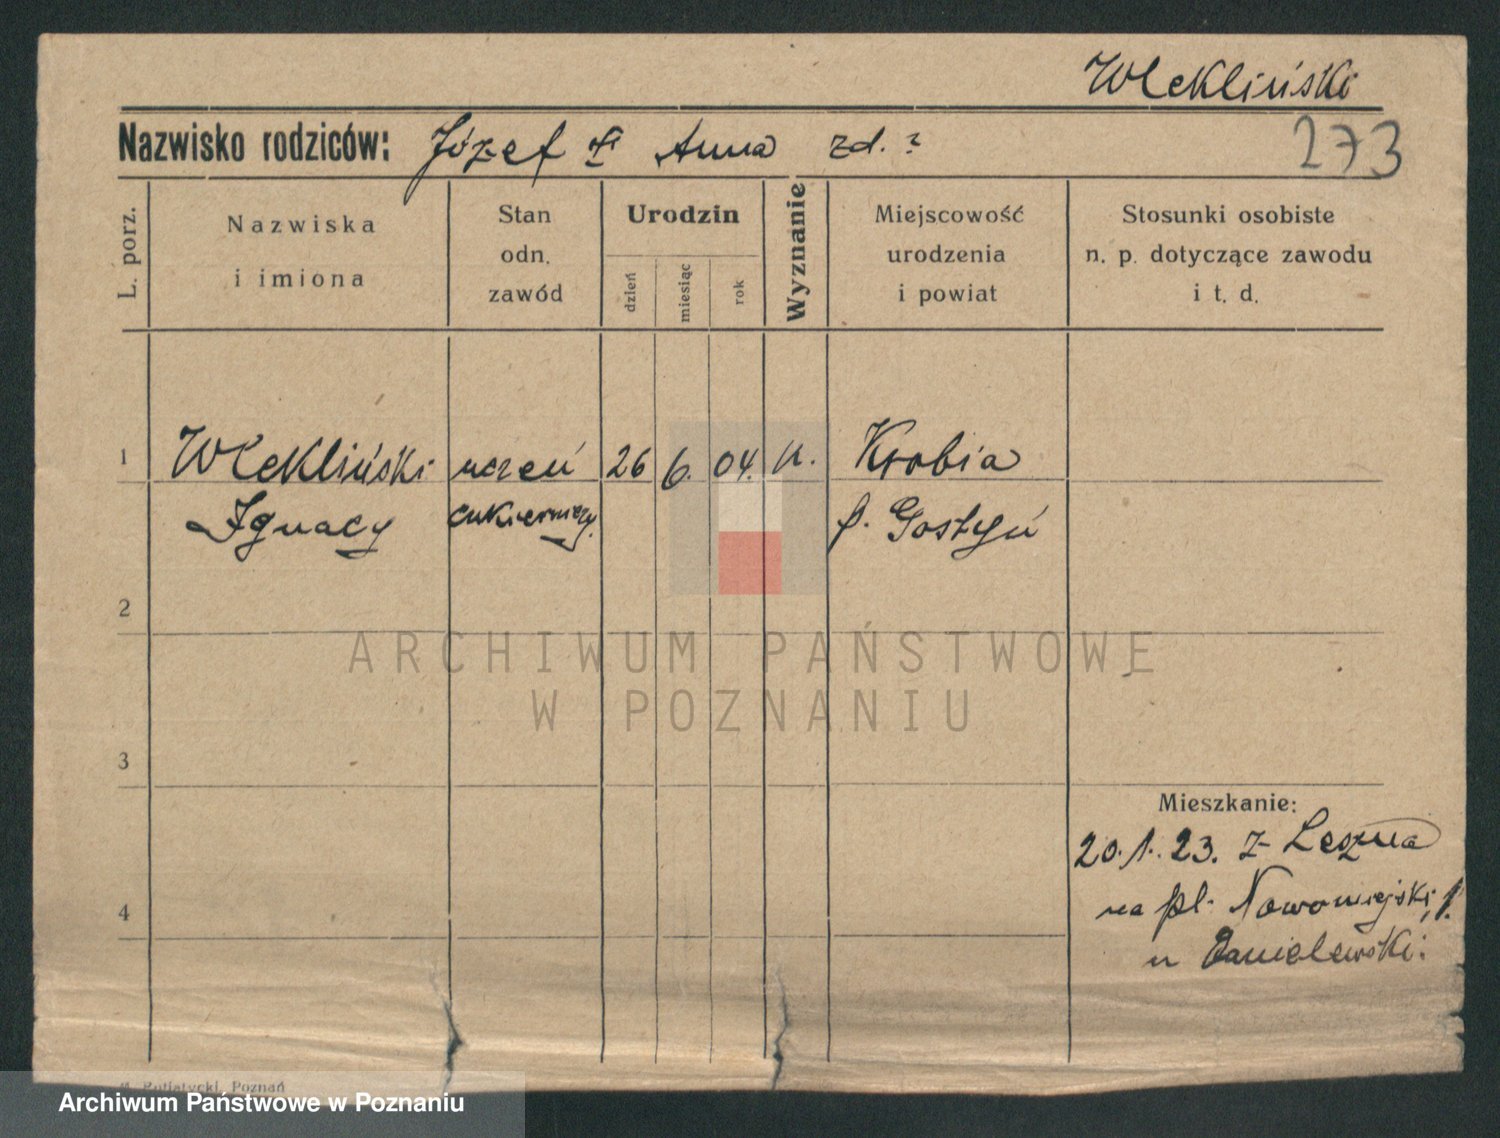 Wlekliński
Nazwisko rodziców: Józef Anna zd. ?
273
L. porz.
Nazwiska
i imiona
Stan
odn.
zawód
Urodzin
dzień
miesiąc
rok
Wyznanie
Miejscowość
urodzenia
i powiat
Stosunki osobiste
n. p. dotyczące zawodu
i t. d.
1 Wlekliński uczeń 26 6. 04. Krobia
Ignacy cukierniczy. p. Gostyń
2
ARCHIWUM PAŃSTWOWE
W POZNANIU
3
Mieszkanie:
20.1.23. z Leszna
4
na pl. Nowomiejski, 1.
u Danielewski.
Putiatycki, Poznań
Archiwum Państwowe w Poznaniu